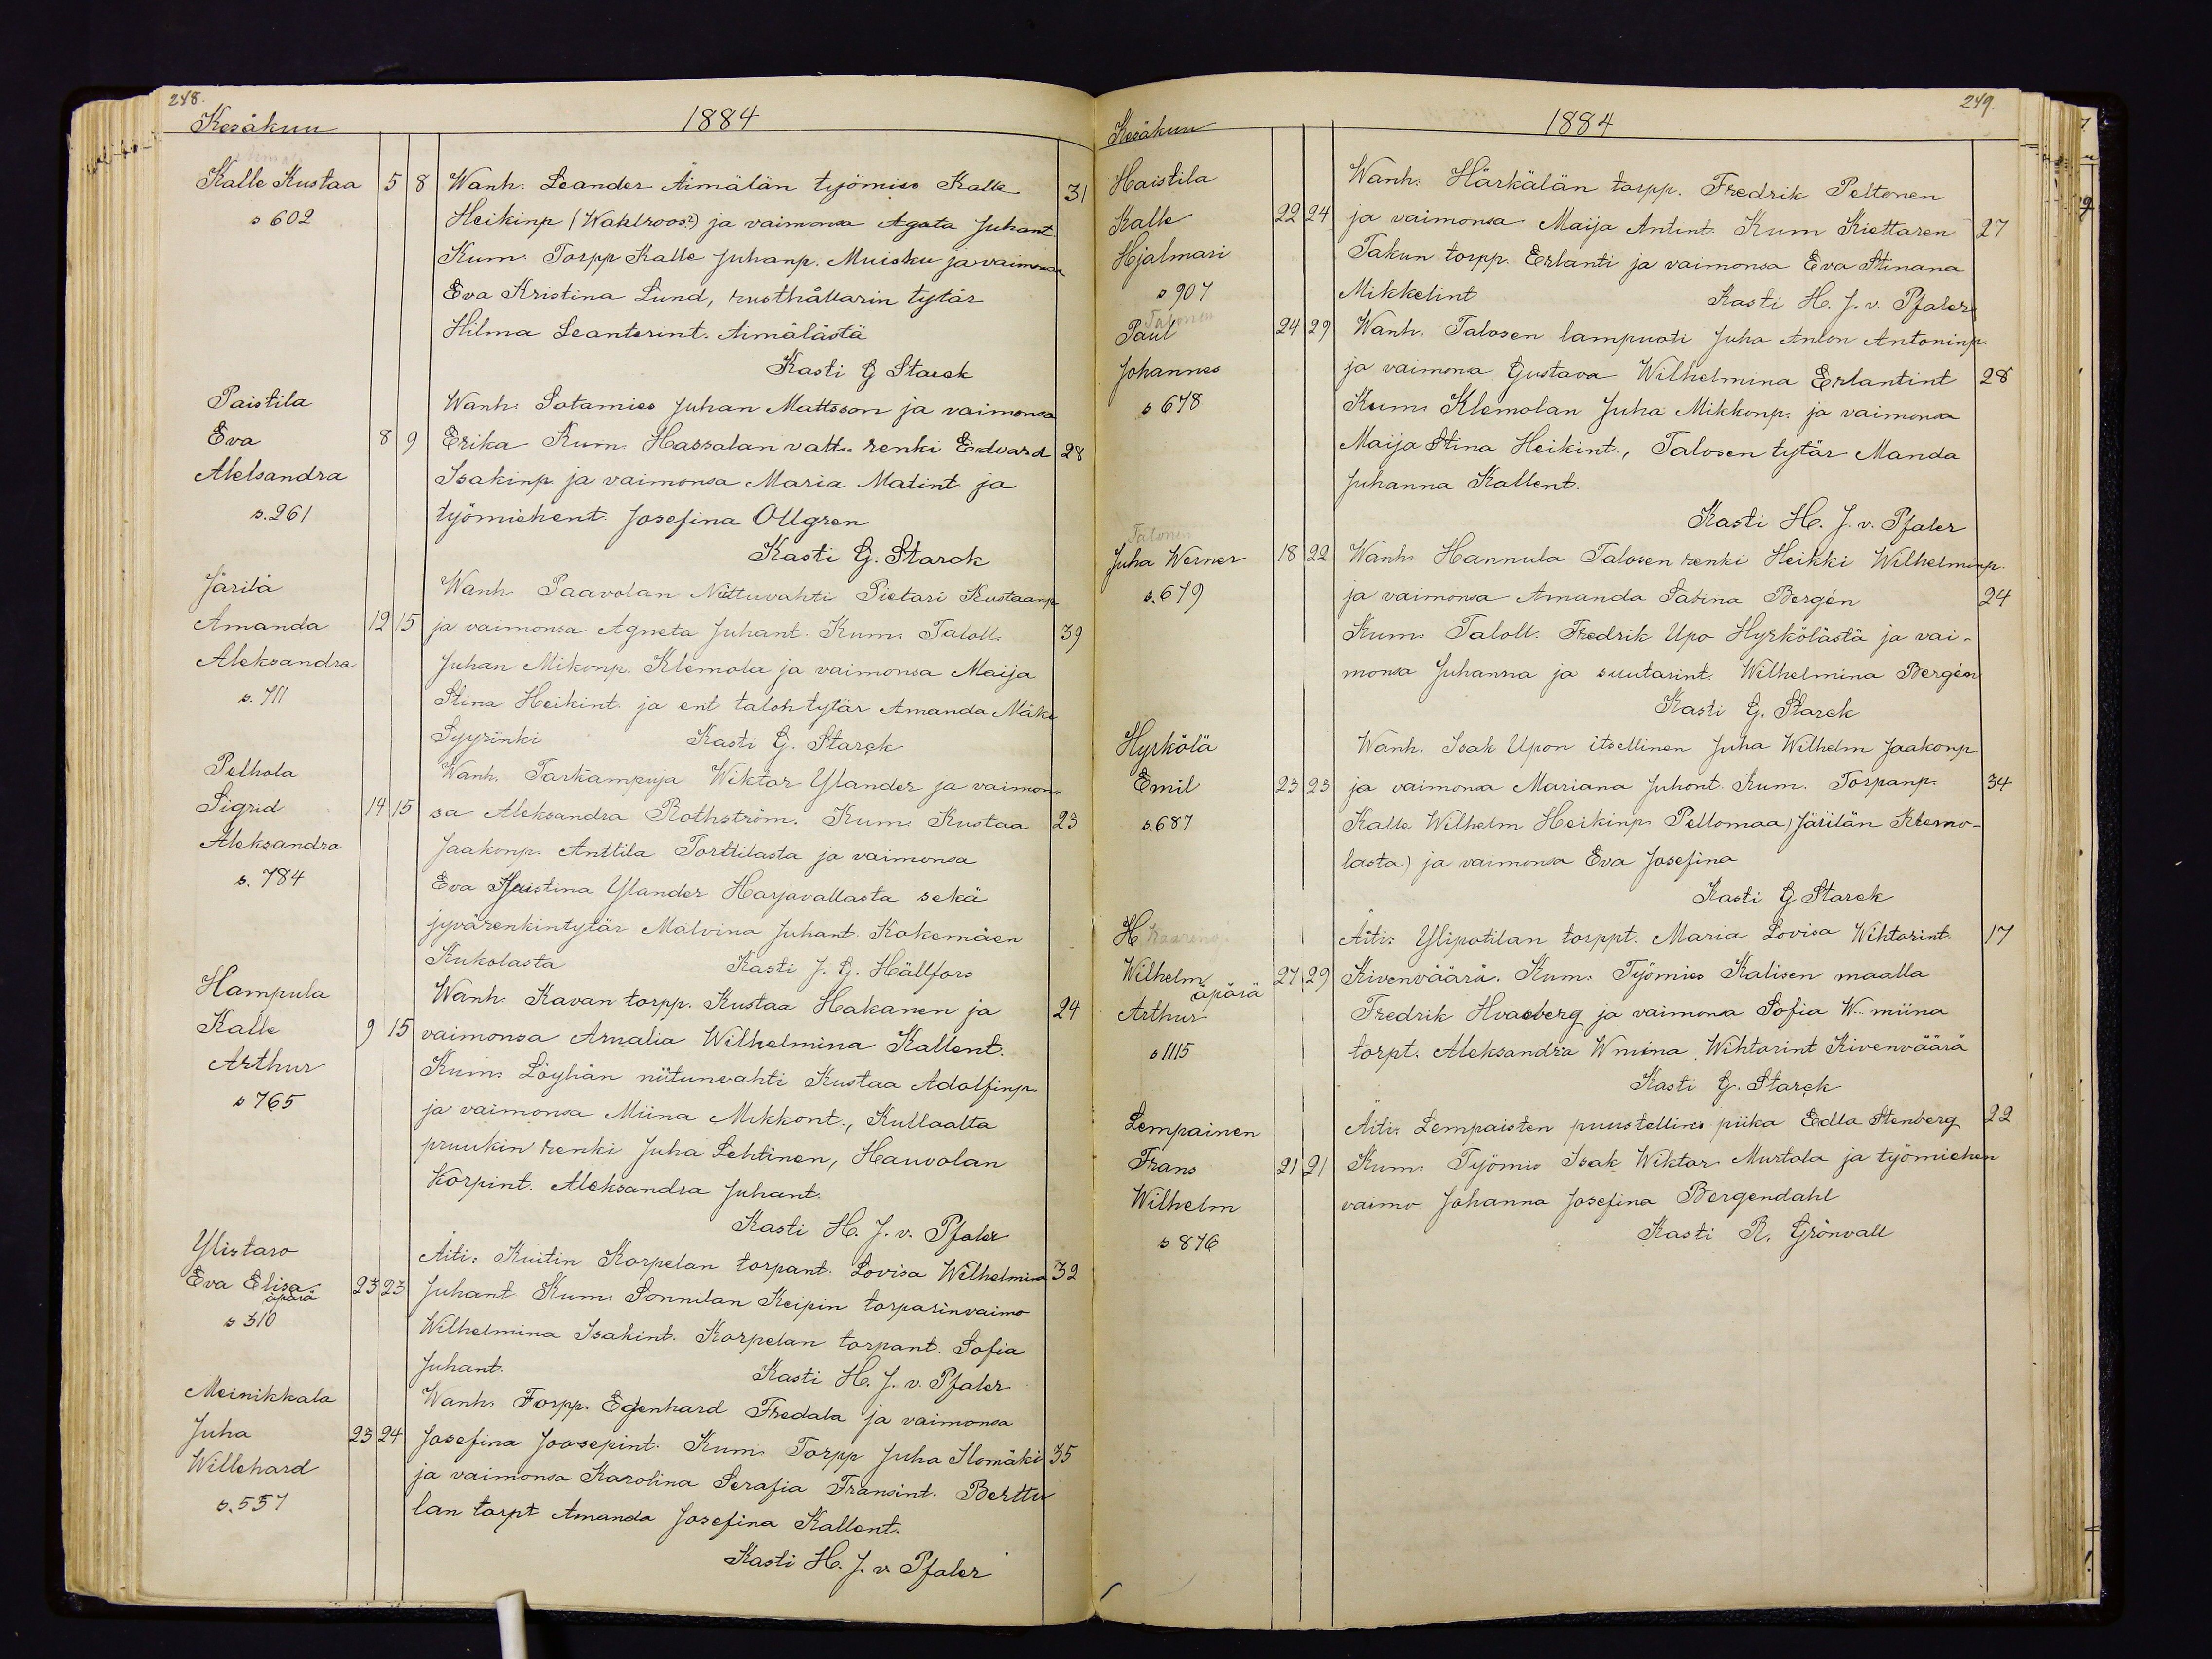 248.
Kesäkuu 1884
Kalle Kustaa 5 8 Wanh. Leander Äimälän työmies Kalle 31
s 602 Heikinp (Wahlroos?) ja vaimonsa Agata Juhant.
Kum. Torpp Kalle Juhanp. Muisku ja vaimonsa
Eva Kristina Lund, rusthållarin tytär
Hilma Leanterint. Äimälästä
Kasti G Starck
Paistila Wanh. Sotamies Juhan Mattsson ja vaimonsa
Eva 8 9 Erika Kum. Hassalan vatt. renki Edvard 28
Aleksandra Isakinp. ja vaimonsa Maria Matint. ja
s. 261 työmiehent. Josefina Ollgren
Kasti G. Starck
Järilä Wanh. Paavolan Niittuvahti Pietari Kustaanp
Amanda 12 15 ja vaimonsa Agneta Juhant. Kum. Taloll. 39
Aleksandra Juhan Mikonp. Klemola ja vaimonsa Maija
s. 711 Stina Heikint. ja ent talon tytär Amanda Mäke
Syyrinki Kasti G. Starck
Pelhola Wanh. Tarkampuja Wiktor Ylander ja vaimon-
Sigrid 14 15 sa Aleksandra Rothström. Kum. Kustaa 23
Aleksandra Jaakonp. Anttila Torttilasta ja vaimonsa
s. 784 Eva Kristina Ylander Harjavallasta sekä
jyvärenkintytär Malvina Juhant. Kokemäen
Kukolasta Kasti J. G. Hällfors
Hampula Wanh. Kavan torpp. Kustaa Hakanen ja 24
Kalle 9 15 vaimonsa Amalia Wilhelmina Kallent.
Arthur Kum. Löyhän niitunvahti Kustaa Adolfinp.
s 765 ja vaimonsa Miina Mikkont., Kullaalta
pruukin renki Juha Lehtinen, Hauvolan
Korpint. Aleksandra Juhant.
Kasti H. J. v. Pfaler
Ylistaro Äiti: Kuitin Korpelan torpant. Lovisa Wilhelmina 32
Eva Elisa 23 23 Juhant Kum. Sonnilan Keipin torparinvaimo
äpärä
s 310 Wilhelmina Isakint. Korpelan torpant. Sofia
Juhant. Kasti H. J. v. Pfaler
Meinikkala Wanh. Torpp. Egenhard Fredala ja vaimonsa
Juha 23 24 Josefina Joosepint. Kum. Torpp Juha Ilomäki 35
Willehard ja vaimonsa Karolina Serafia Fransint. Berttu
s. 557 lan torpt Amanda Josefina Kallent.
Kasti H. J. v. Pfaler
249.
Kesäkuu 1884
Haistila Wanh. Härkälän torpp. Fredrik Peltonen
Kalle 22 24 ja vaimonsa Maija Antint. Kum Kiettaren 27
Hjalmari Takun torpp. Erlanti ja vaimonsa Eva Stinana
s 907 Mikkelint Kasti H. J. v. Pfaler
Talonen
Paul 24 29 Wanh. Talosen lampuoti Juha Anton Antoninp.
Johannes ja vaimonsa Gustava Wilhelmina Erlantint 28
s 678 Kum. Klemolan Juha Mikkonp. ja vaimonsa
Maija Stina Heikint., Talosen tytär Manda
Juhanna Kallent.
Kasti H. J. v. Pfaler
Talonen
Juha Werner 18 22 Wanh. Hannula Talosen renki Heikki Wilhelminp.
s. 679 ja vaimonsa Amanda Sabina Bergén 24
Kum. Taloll. Fredrik Upo Hyrkölästä ja vai-
monsa Juhanna ja suutarint. Wilhelmina Bergén
Kasti G. Starck
Hyrkölä Wanh. Isak Upon itsellinen Juha Wilhelm Jaakonp
Emil 23 23 ja vaimonsa Mariana Juhont. Kum. Torpanp. 34
s. 687 Kalle Wilhelm Heikinp. Peltomaa) Järilän Klemo-
lasta) ja vaimonsa Eva Josefina
Kasti G Starck
H Äiti: Ylipotilan torppt. Maria Lovisa Wihtorint. 17
Wilhelm 27 29 Kivenväärä. Kum. Työmies Kalisen maalla
äpärä
Arthur Fredrik Hvasberg ja vaimonsa Sofia W. miina
s 1115 torpt. Aleksandra Wmiina Wihtorint Kivenväärä
Kasti G. Starck
Lempainen Äiti: Lempaisten puustellins piika Edla Stenberg 22
Frans 21 21 Kum. Työmies Isak Wiktor Murtola ja työmiehen
Wilhelm vaimo Johanna Josefina Bergendahl
s 876 Kasti R. Grönvall